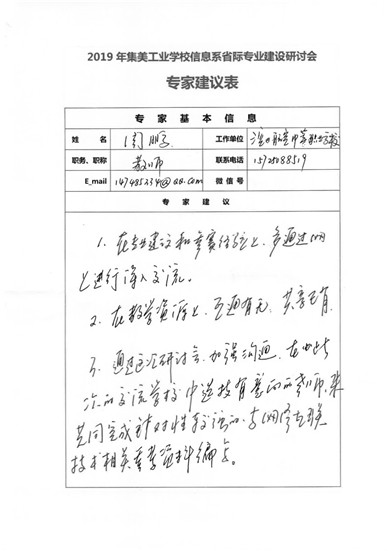 2019 年集美工业学校信息系省际专业建设研讨会
专家建议表
专 家 基 本 信 息
姓 名 闫鹏 工作单位 中等职业学校
职务、职称 教师 联系电话 15725088519
E_mail @qq.com 微 信 号
专 家 建 议
1. 在专业建设和参赛经验上，多通过网
上进行深入交流。
2. 在教学资源上，互通有无，共享已有
3. 通过这次研讨会，加强沟通，在此
次的交流学校中选拔有意的教师，来
共同完成针对性较强的，与网络互联
技术相关重考资料编写。